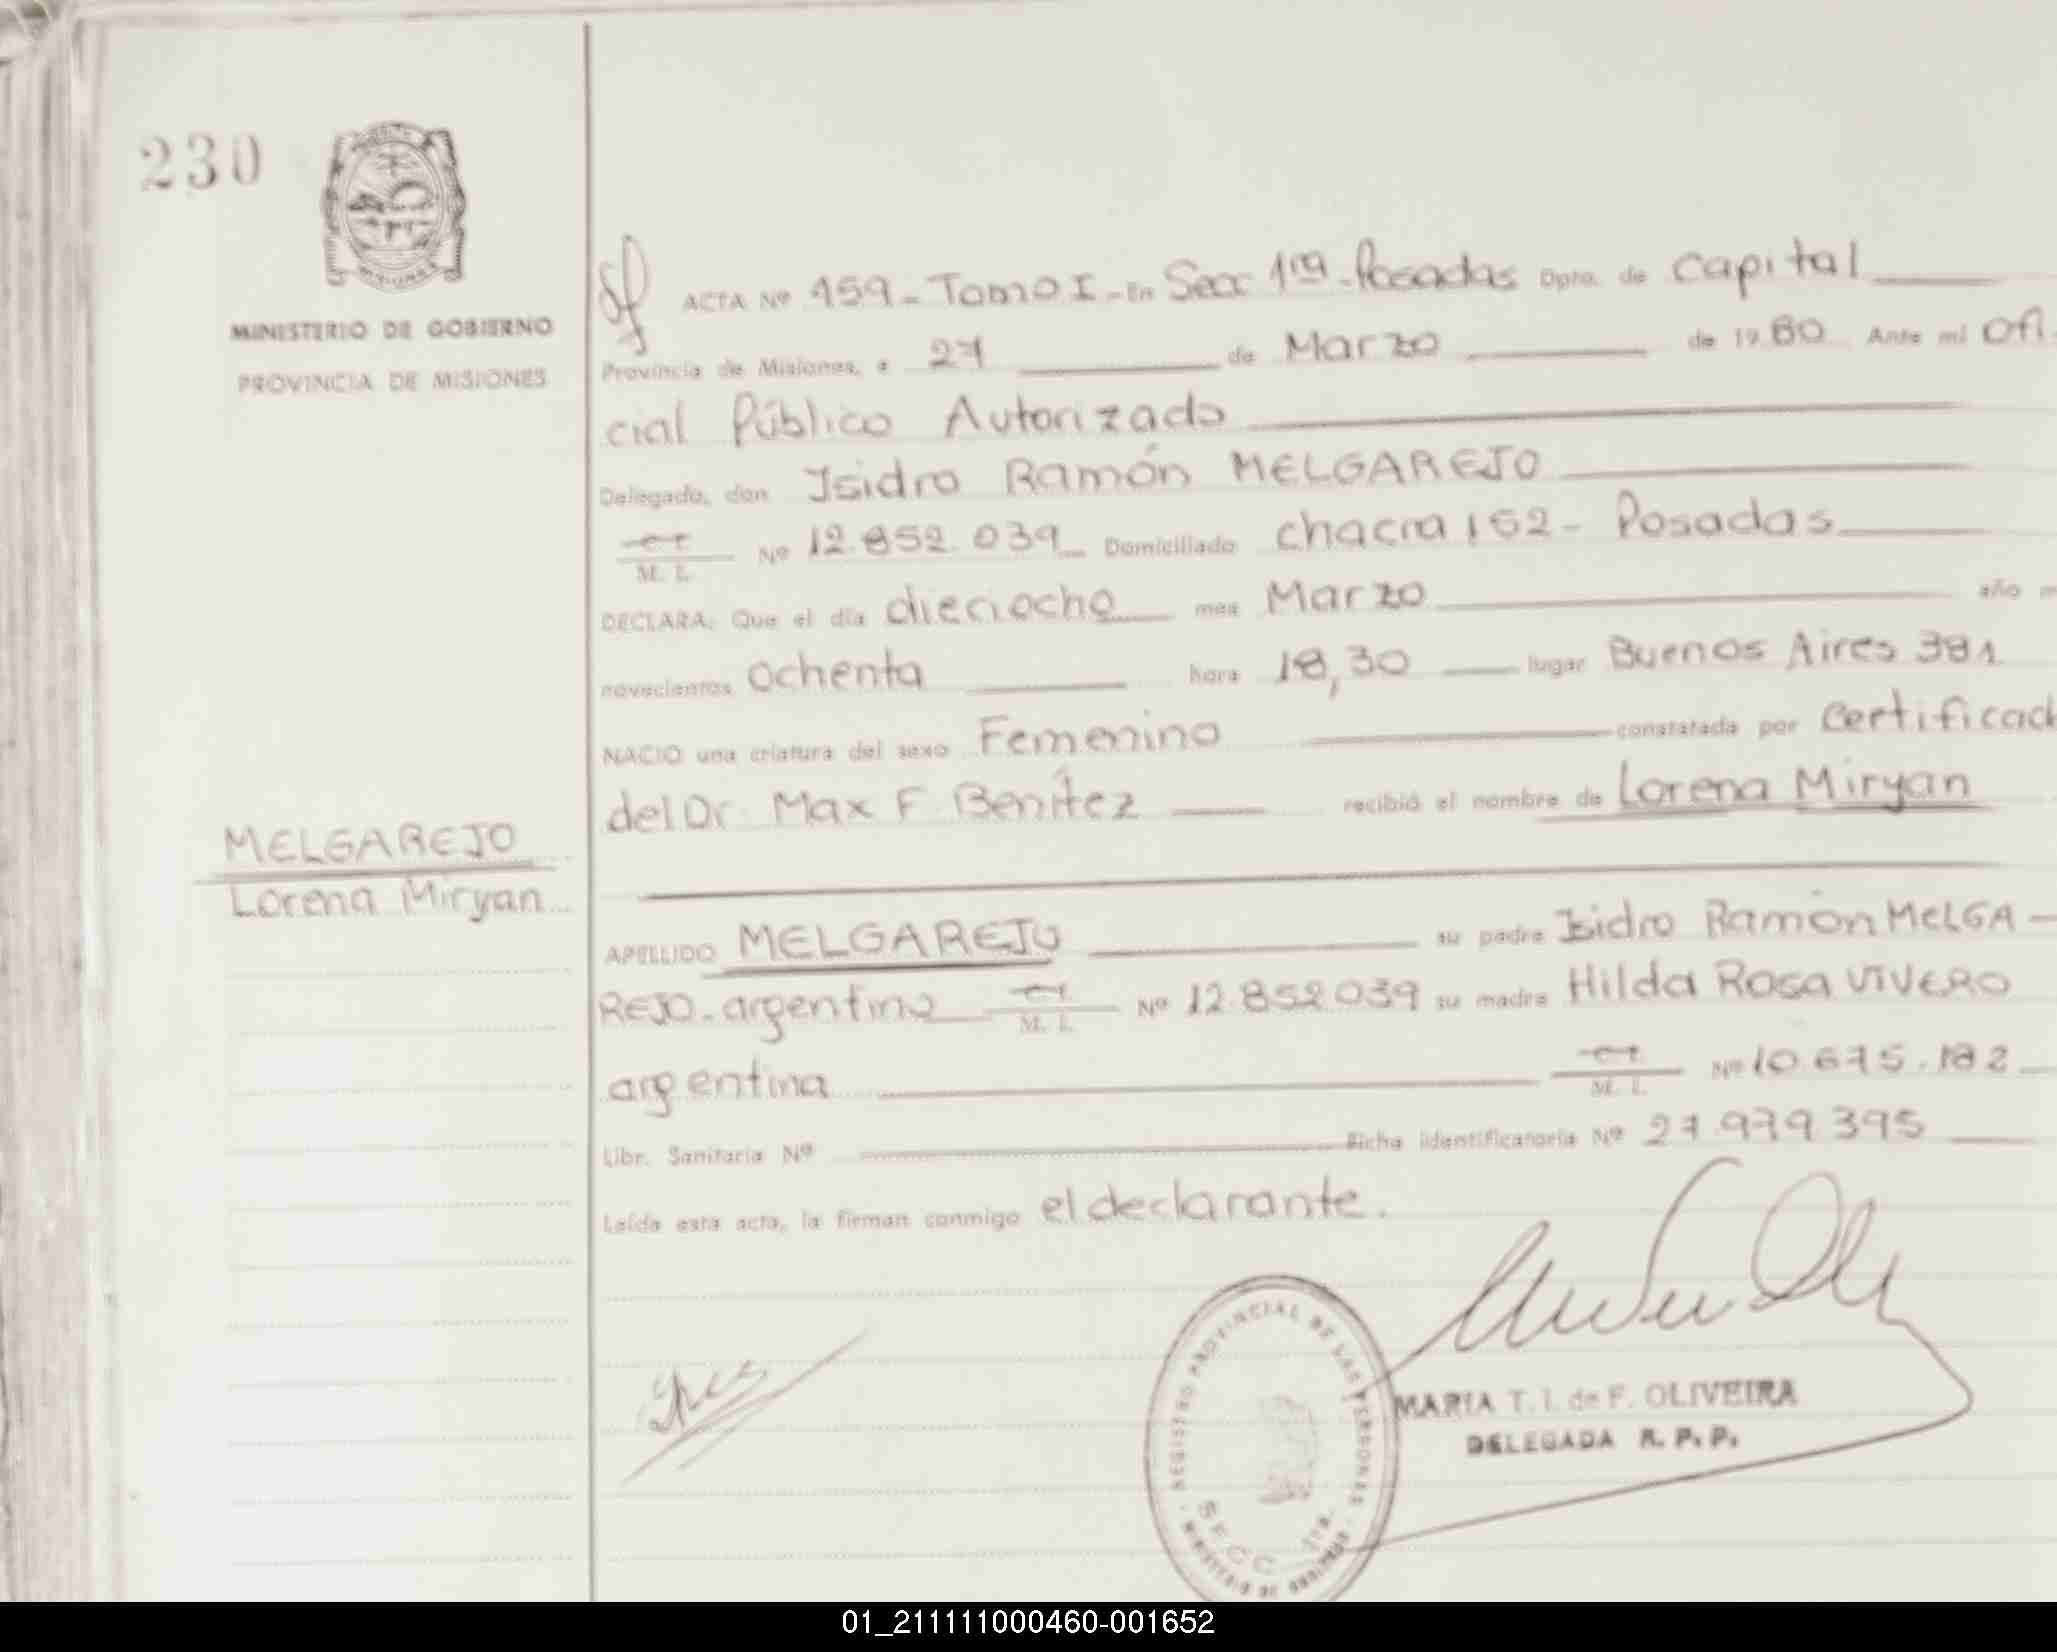 230
MINISTERIO DE GOBIERNO
PROVINCIA DE MISIONES
ACTA Nº 459 - Tomo I - En Secc 1ra - Posadas Dpto. de Capital
Provincia de Misiones, a 27 de Marzo de 1980 Ante mí Ofi
cial Público Autorizado
Delegado, don Isidro Ramón MELGAREJO
M. I. Nº 12.852.039 Domiciliado chacra 152 - Posadas
DECLARA: Que el día dieciocho mes Marzo año
novecientos ochenta hora 18,30 lugar Buenos Aires 381
NACIO una criatura del sexo Femenino constatada por Certificad
del Dr. Max F. Benítez recibió el nombre de Lorena Miryan
MELGAREJO
Lorena Miryan
APELLIDO MELGAREJO su padre Isidro Ramón MELGA -
REJO - argentino M. I. Nº 12.852.039 su madre Hilda Rosa VIVERO
argentina M. I. Nº 10.675.182
Libr. Sanitaria Nº Ficha identificatoria Nº 27.979.395
Leída esta acta, la firman conmigo el declarante.
REGISTRO PROVINCIAL DE LAS PERSONAS
SECC. 1ra.
MINISTERIO DE GOBIERNO
MARIA T. I. de F. OLIVEIRA
DELEGADA R. P. P.
01_211111000460-001652